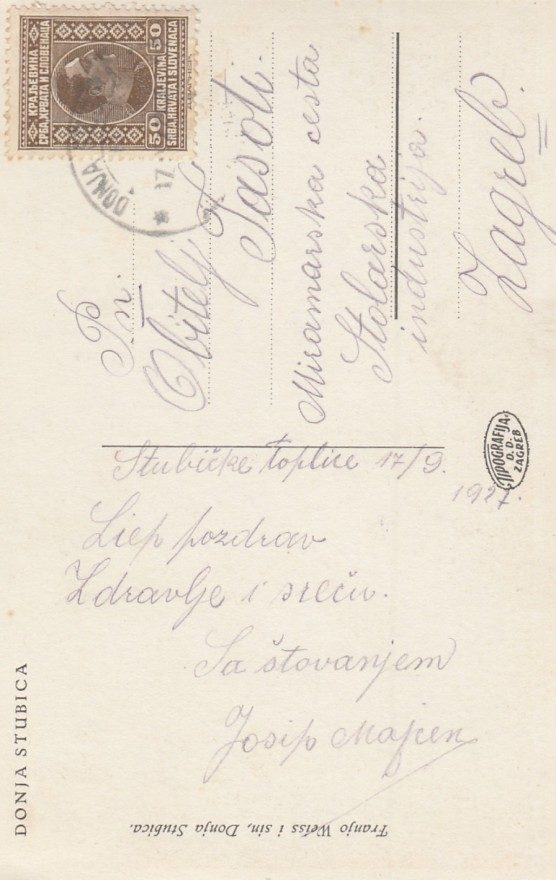 КРАЉЕВИНА
СРБА, ХРВАТА И СЛОВЕНАЦА
50 KRALJEVINA 50
SRBA, HRVATA I SLOVENACA
DONJA
17
Pn.
Obitelj
Jasoti.
Miramarska cesta
Stolarska
industrija.
Zagreb.
TIPOGRAFIJA
D. D.
ZAGREB
Stubičke toplice 17/9.
1927.
Liep pozdrav
Zdravlje i sreću.
Sa štovanjem
Josip Majcen
DONJA STUBICA
Franjo Weiss i sin, Donja Stubica.